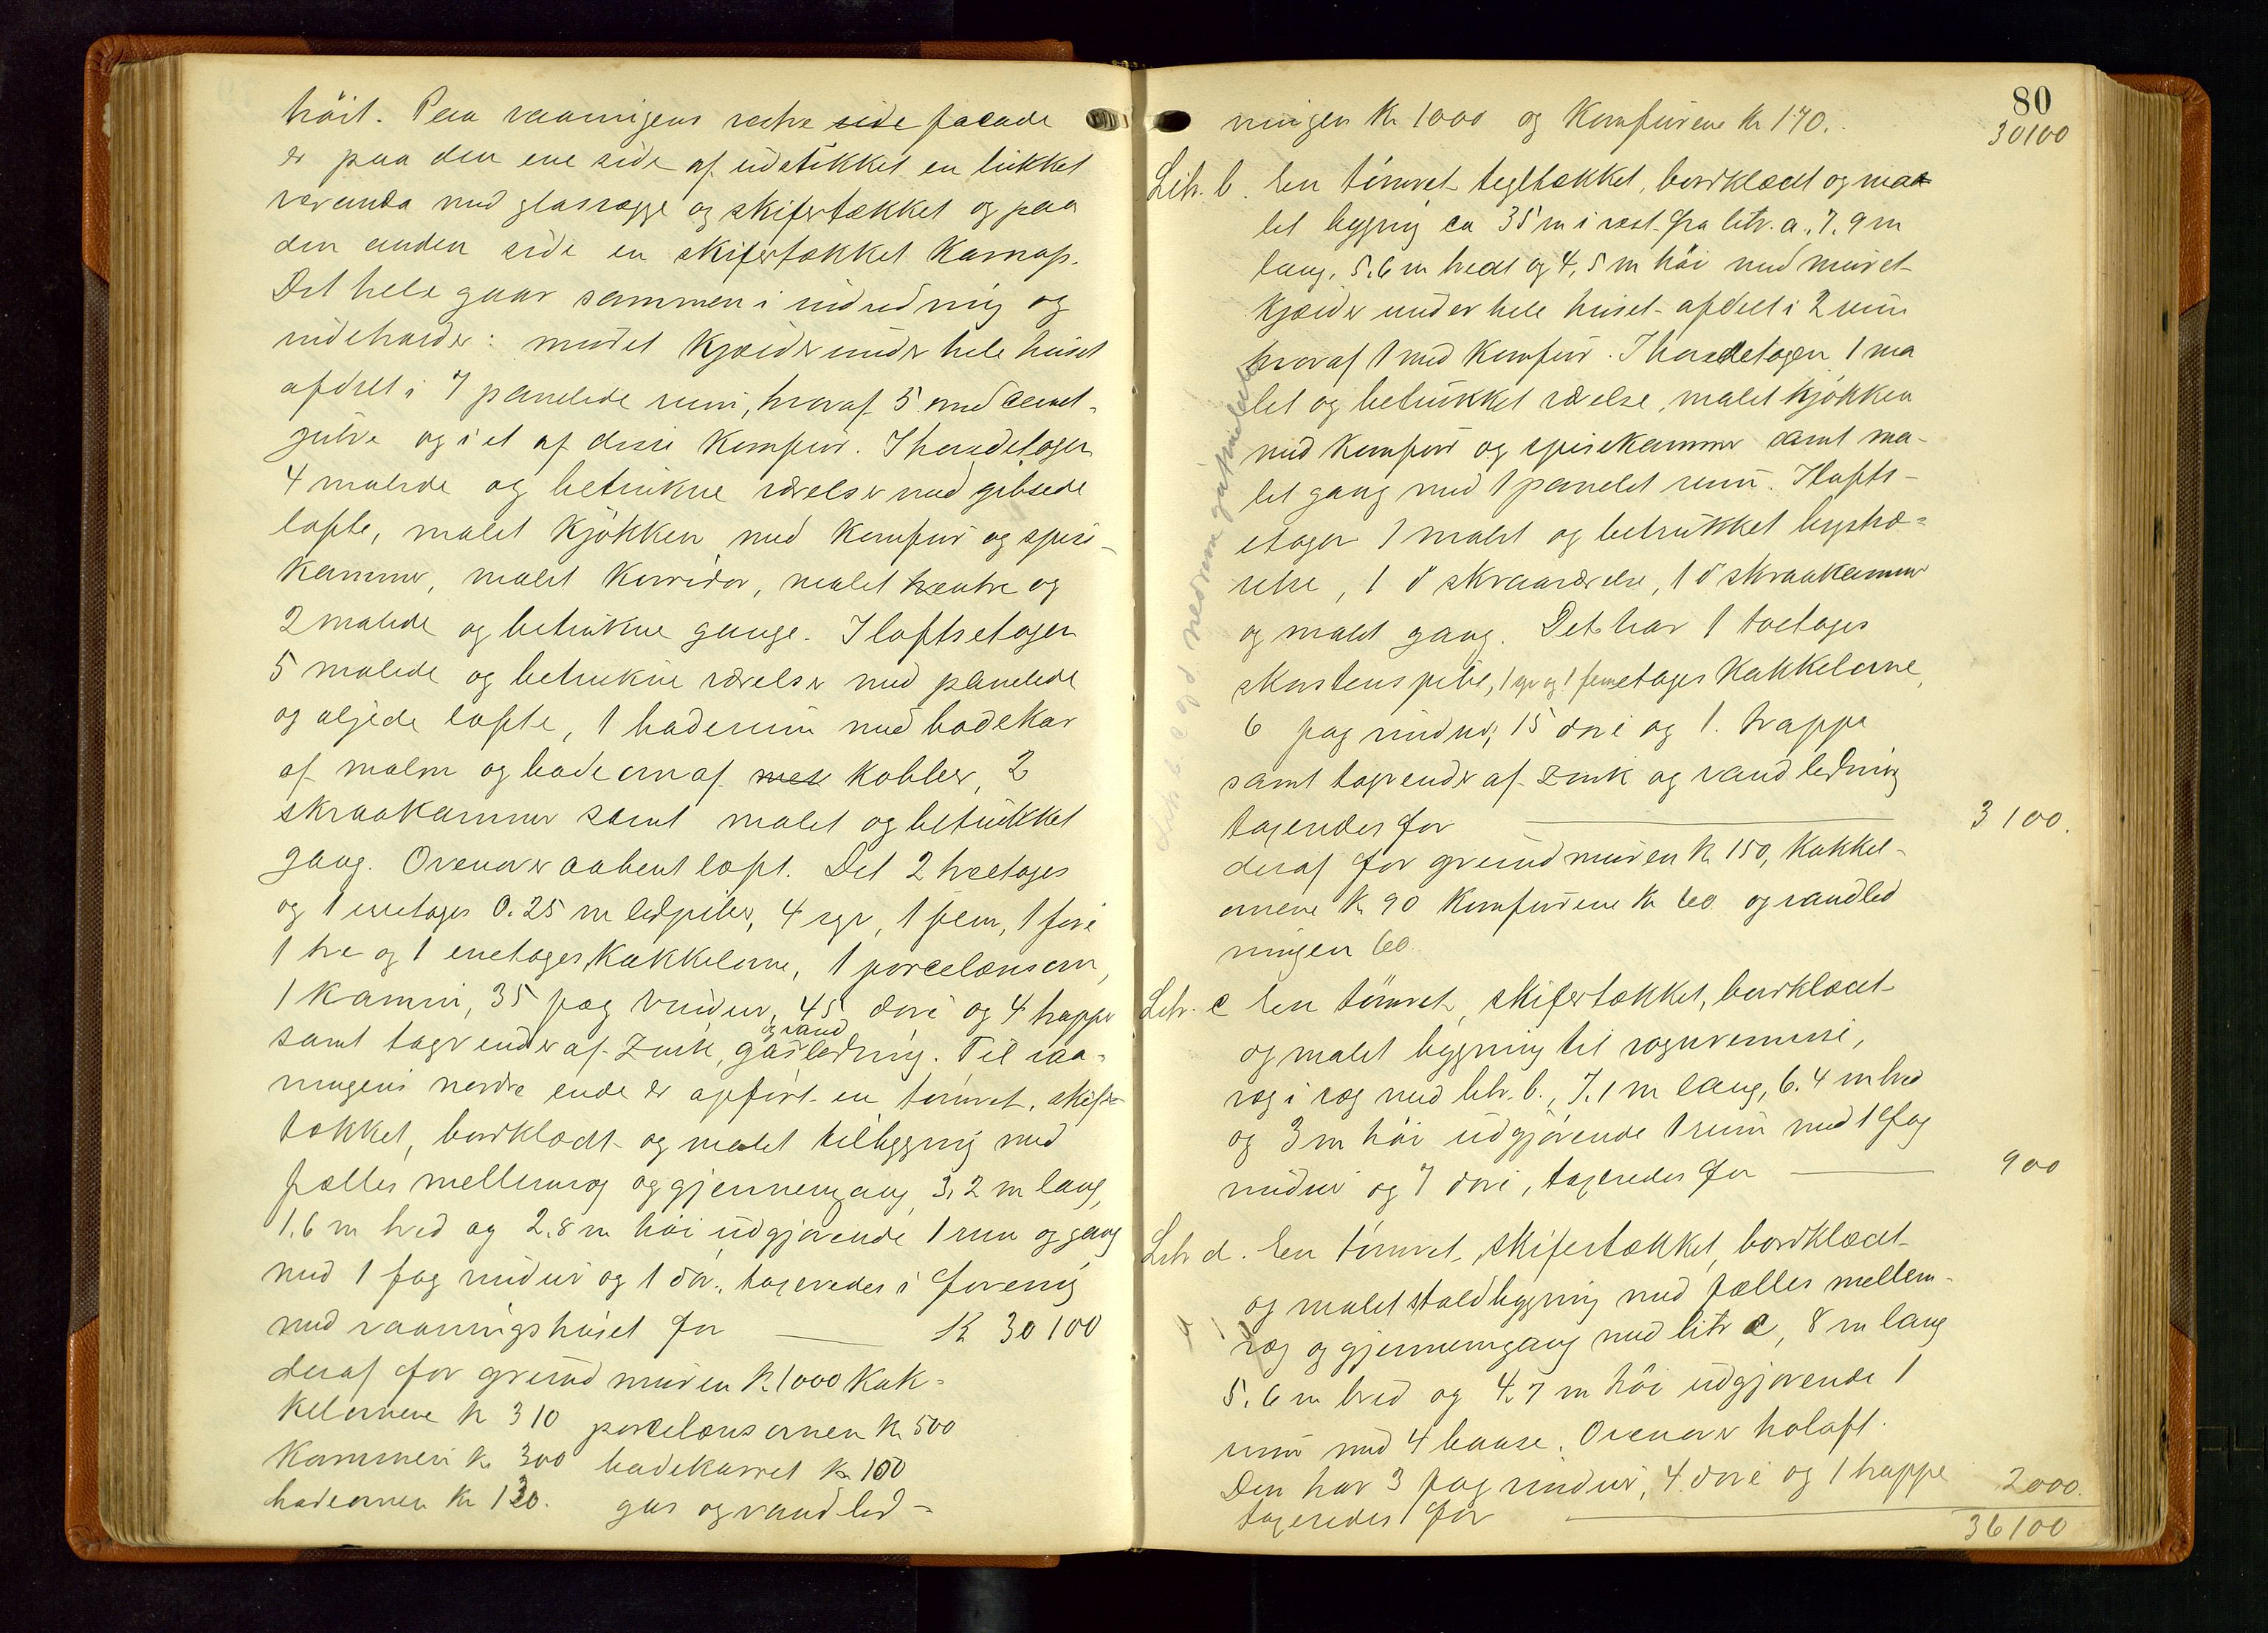 höit. Paa vaaningens vestre side facade
er paa den ene side af udstikket en lukket
veranda med glasvægge og skifertækket og paa
den anden side en skifertækket karnap.
Det hele gaar sammen i indredning og
indeholder: muret kjælder under hele huset
afdelt i 7 panelede rum, hvoraf 5 med cement-
gulve og i et af disse komfur. I hovedetagen
4 malede og betrukne værelser med gibsede
lofte, malet kjøkken med komfur og spise-
kammer, malet korridor, malet entre og
2 malede og betrukne gange. I loftsetagen
5 malede og betrukne værelser med panelede
og oljede lofte, 1 baderum med badekar
af malm og badeovn af kobber, 2
skraakammer samt malet og betrukket
gang. Ovenover aabent loft. Det 2 treetages
og 1 enetages 0.25 m ledpiber, 4 syv, 1 fem, 1 fire
1 tre og 1 enetages kakkelovne, 1 porcelænsovn,
1 kamin, 35 fag vinduer, 45 döre og 4 trapper
samt tagrender af zink, gas og vand ledning. Til vaa-
ningens nordre ende er opfört en tömret, skifer-
tækket, bordklædt og malet tilbygning med
fælles mellemvæg og gjennemgang, 3,2 m lang,
1.6 m bred og 2.8 m höi udgjörende 1 rum og gang
med 1 fag vinduer og 1 dör, taxeredes i forening
med vaaningshuset for K 30100
deraf for grundmuren K. 1000 kak-
kelovnene K 310 porcelænsovnen K 500
Kaminen K. 300 badekarret K 100
badeovnen K 120. gas og vandled-
80
ningen K 1000 og Komfurene K 170. 30100
Litr. b. En tömret tegltækket, bordklædt og maa-
let bygning ca 35 m i vest fra litr. a, 7,9 m
lang, 5.6 m bredt og 4,5 m höi med muret
kjælder under hele huset afdelt i 2 rum
hvoraf 1 med komfur. I hovedetagen 1 ma
let og betrukket værelse, malet kjökken
med komfur og spisekammer samt ma-
let gang med 1 panelet rum. I lofts-
etagen 1 malet og betrukket kvistvæ-
relse, 1 do skraaværelse, 1 do skraakammer
og malet gang. Det har 1 toetages
skorstenspibe, 1 syv og 1 femetages kakkelovne,
6 fag vinduer, 15 döre og 1 trappe
samt tagrender af zink og vandledning
taxeredes for 3100.
deraf for grundmuren K 150, kakkel-
ovnene K 90 komfurene K 60 og vandled
ningen 60.
Litr. c En tömret, skifertækket, bordklædt
og malet bygning til vognremisse,
væg i væg med litr. b., 7.1 m lang, 6.4 m bred
og 3 m höi udgjörende 1 rum med 1 fag
vinduer og 7 döre, taxeredes for 900
Litr d. En tömret, skifertækket, bordklædt
og malet staldbygning med fælles mellem-
væg og gjennemgang med litr c, 8 m lang
5.6 m bred og 4.7 m höi udgjörende 1
rum med 4 baase. Ovenover höloft.
Den har 3 fag vinduer, 4 döre og 1 trappe
taxeredes for 2000.
36100